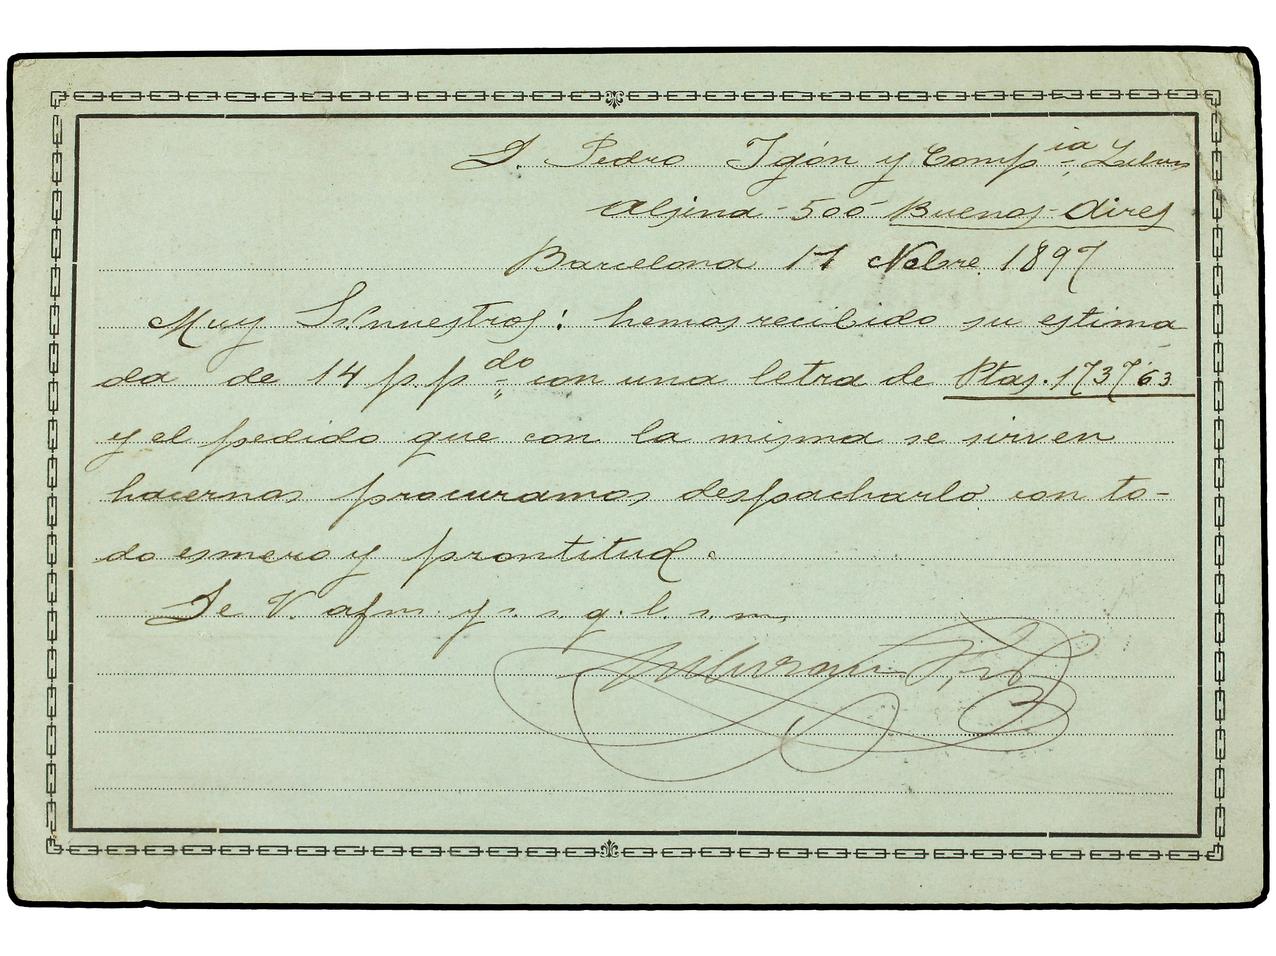 D. Pedro Igón y Comp.ia
Alsina - 500 - Buenos-Aires
Barcelona 17 Nobre. 1897
Muy Sr. nuestros: hemos recibido su estima
da de 14 p. pdo con una letra de Ptas. 1737'63
y el pedido que con la misma se sirven
hacernos procuramos despacharlo con to-
do esmero y prontitud.
De V. afm. y s. s. q. b. s. m.